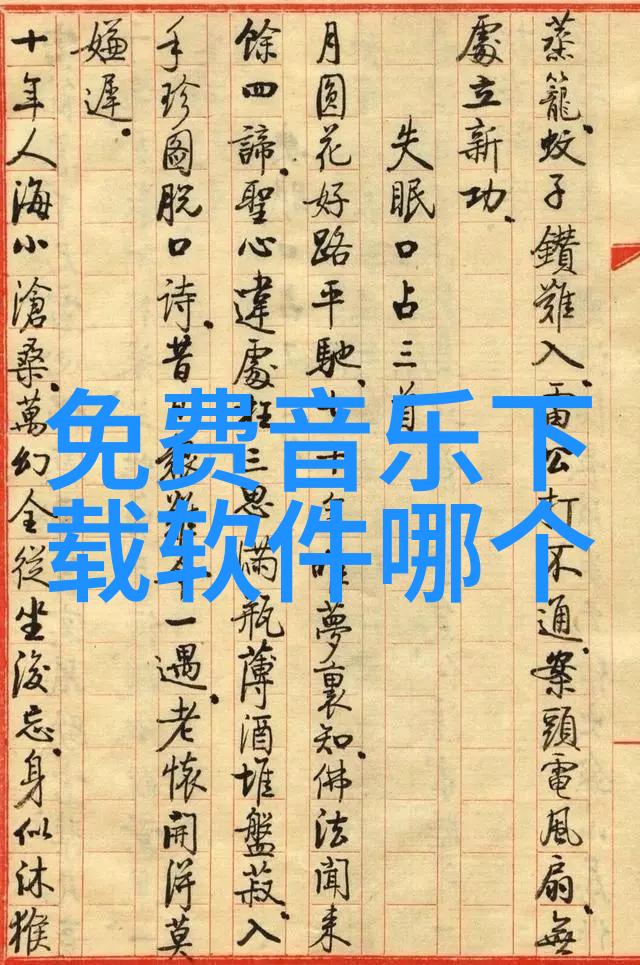 蒸籠蚊子鑽難入雷公打不通案頭電風扇無
處立新功
失眠口占三首
月圓花好路平馳七十年唯夢裏知佛法聞来
餘四諦聖心違處枉三思滿瓶薄酒堆盤菽入
手珍圖脱口詩昔一遇老懷開得莫
嫌遲
十年人海小滄桑萬幻全從坐後忘身似沐猴
免费音乐下
载软件哪个